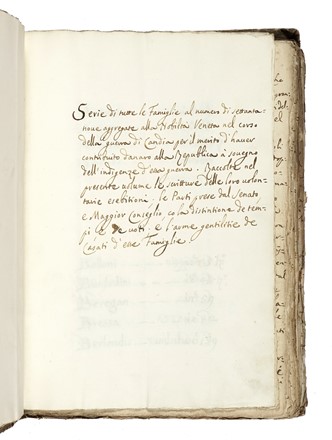 Serie di tutte le Famiglie al numero di settanta-
noue aggregate alla Nobiltà Veneta nel corso
della guerra di Candia per il merito di hauer
contribuito danaro alla Republica à souegno
dell'indigenze di essa guerra. Raccolte nel
presente uolume le scritture delle loro uolon-
tarie esebitioni, le Parti prese dal Senato
e Maggior Conseglio, co la distintione de tem-
pi e de uoti, e l'arme gentilitie de
Casati d'esse Famiglie